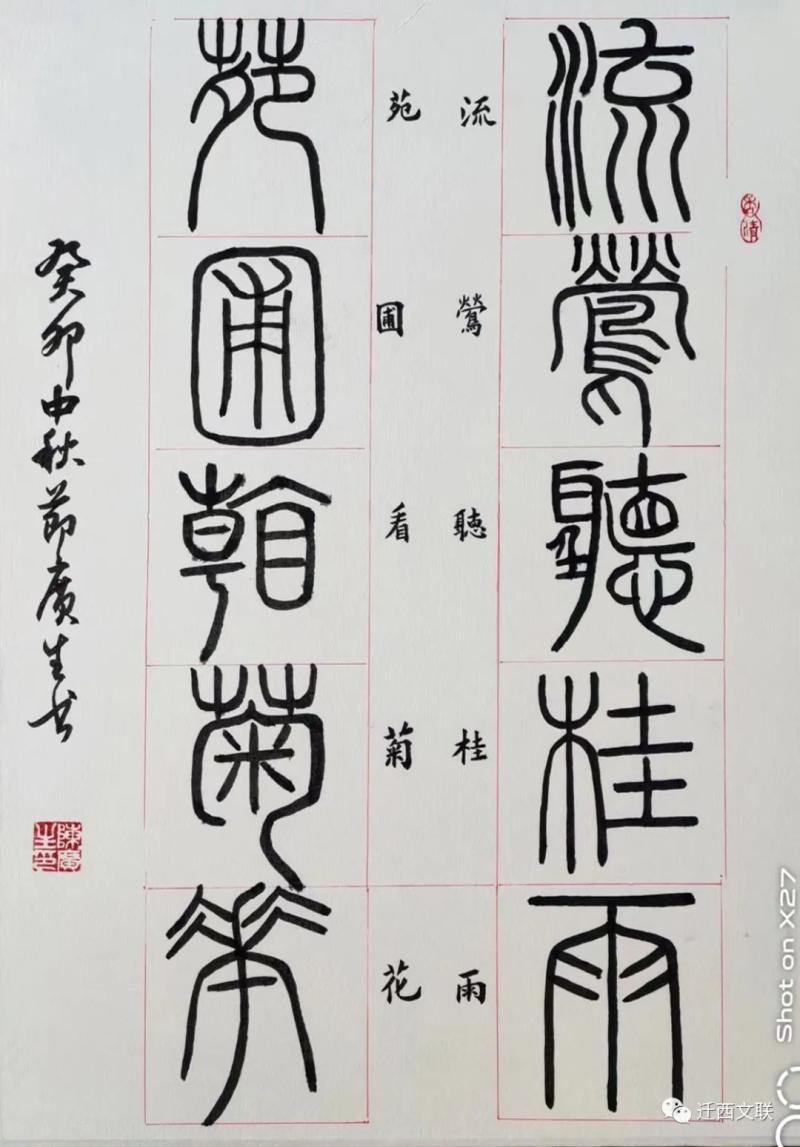 流鶯聽桂雨
流鶯聽桂雨
苑圃看菊花
苑圃看菊花
癸卯中秋節廣生書
陳廣生印
Shot on X27
迁西文联